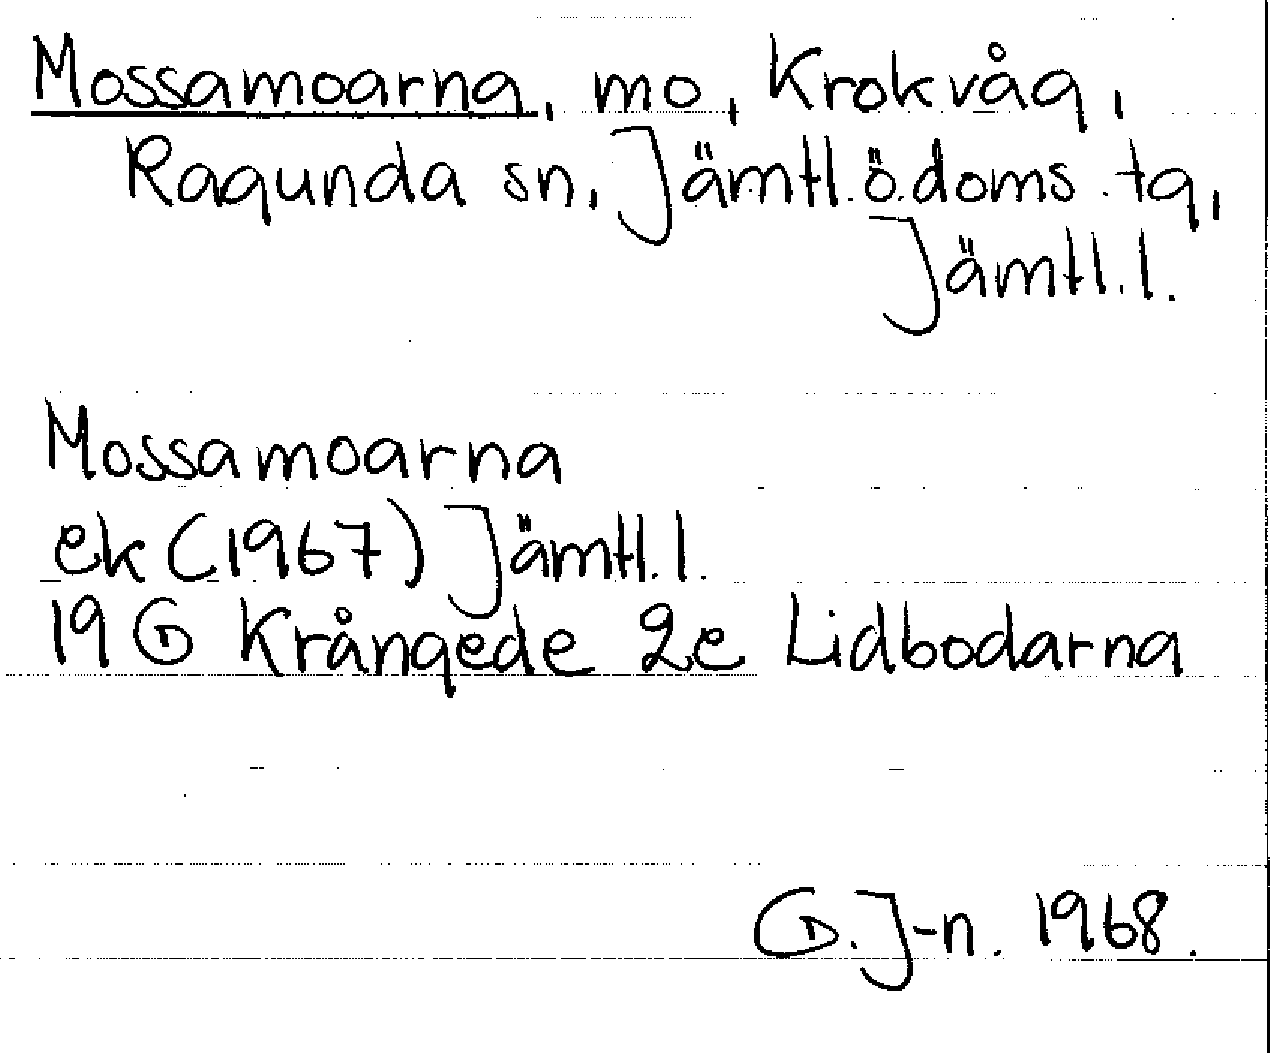 Mossamoarna, mo, Krokvåg,
Ragunda sn, Jämtl. ö. doms. tg,
Jämtl. l.
Mossamoarna
ek (1967) Jämtl. l.
19 G Krångede 2e Lidbodarna
G. J-n. 1968.